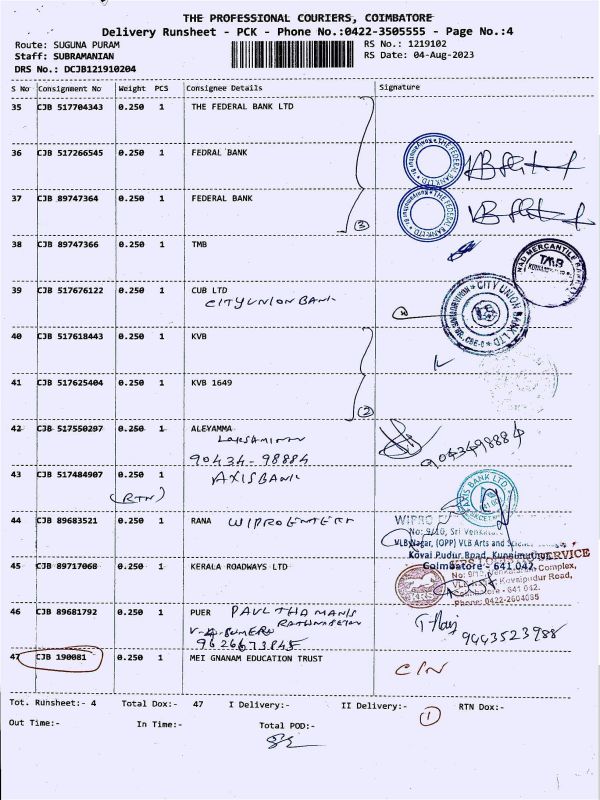 THE PROFESSIONAL COURIERS, COIMBATORE
Delivery Runsheet - PCK - Phone No.:0422-3505555 - Page No.:4
Route: SUGUNA PURAM
RS No.: 1219102
Staff: SUBRAMANIAN
RS Date: 04-Aug-2023
DRS No.: DCJB121910204
S No Consignment No Weight PCS Consignee Details Signature
35 CJB 517704343 0.250 1 THE FEDERAL BANK LTD
36 CJB 517266545 0.250 1 FEDRAL BANK
THE FEDERAL BANK LTD
37 CJB 89747364 0.250 1 FEDERAL BANK
THE FEDERAL BANK LTD
3
38 CJB 89747366 0.250 1 TMB
TMB
39 CJB 517676122 0.250 1 CUB LTD
CITY UNION BANK
CITY UNION BANK LTD
40 CJB 517618443 0.250 1 KVB
41 CJB 517625404 0.250 1 KVB 1649
2
42 CJB 517550297 0.250 1 ALEYAMMA
90434-98884
43 CJB 517484907 0.250 1 AXIS BANK
(RTN)
AXIS BANK LTD.
44 CJB 89683521 0.250 1 RANA WIPRO
WIPRO
No: 9/10, Sri
VLB Nagar, (OPP) VLB Arts and
Kovai Pudur Road, Kuniamuthur
Coimbatore - 641 042.
45 CJB 89717068 0.250 1 KERALA ROADWAYS LTD
SERVICE
Complex,
Kovaipudur Road,
641 042.
Phone: 0422-2604085
46 CJB 89681792 0.250 1 PUER PAUL
9626673845
9443523988
47 CJB 190081 0.250 1 MEI GNANAM EDUCATION TRUST
C/N
Tot. Runsheet:- 4 Total Dox:- 47 I Delivery:- II Delivery:- RTN Dox:-
1
Out Time:- In Time:- Total POD:-